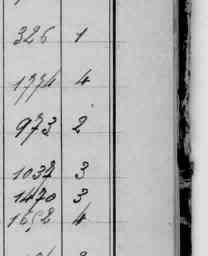 326 1
1774 4
973 2
1037 3
1470 3
1652 4